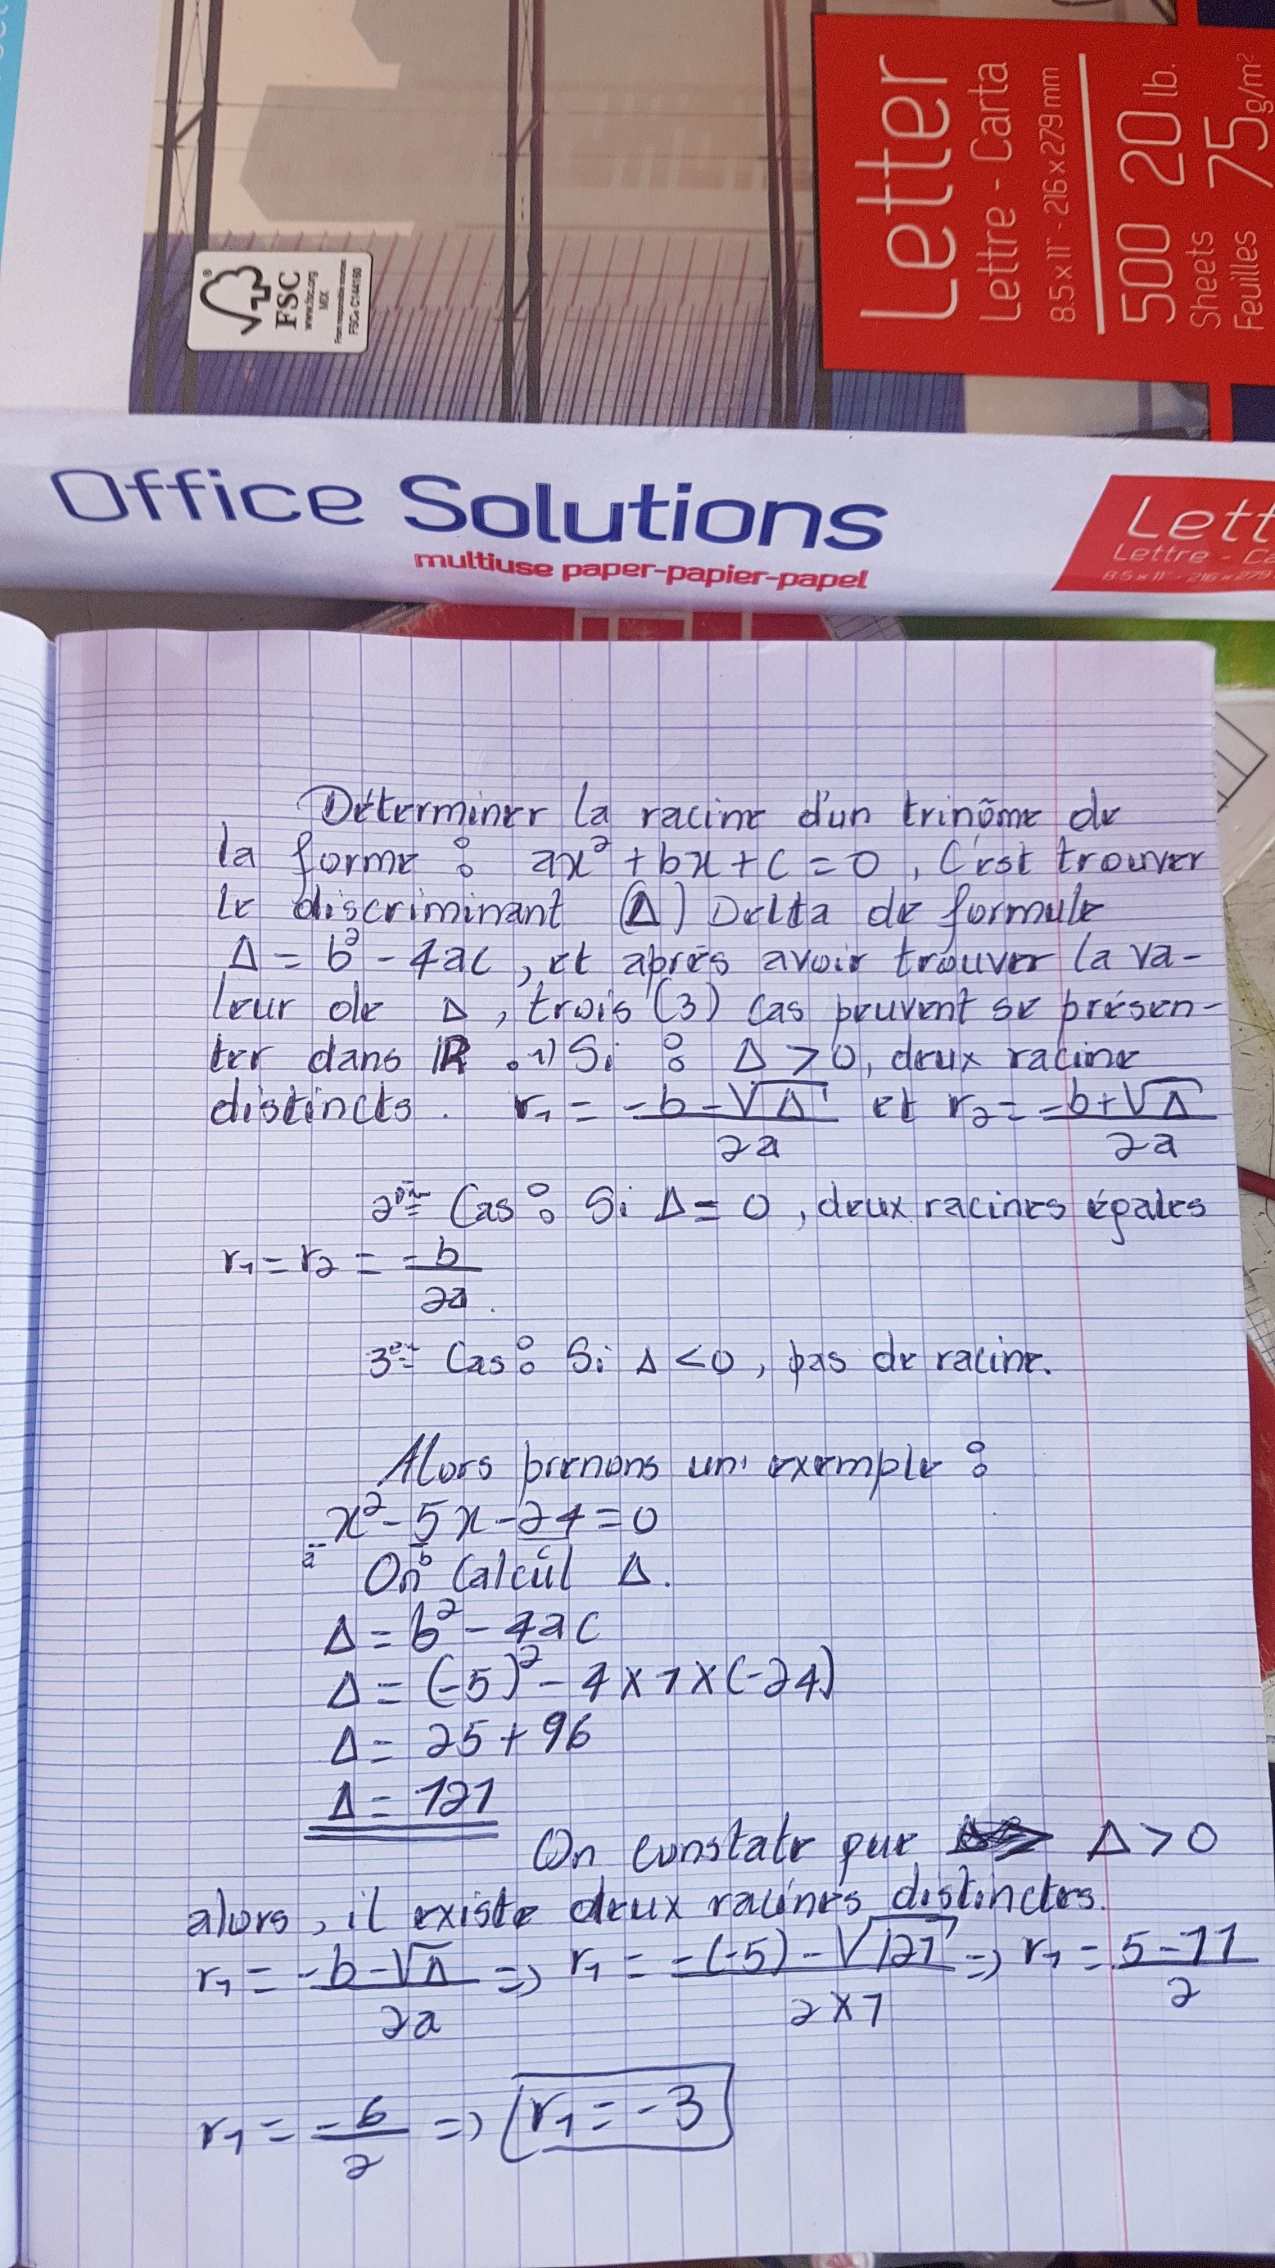 FSC
www.fsc.org
MIX
From responsible sources
FSC® C144160
Letter
Lettre - Carta
8.5 x 11" - 216 x 279 mm
500 20 lb.
Sheets 75 g/m²
Feuilles
Office Solutions
multiuse paper-papier-papel
Lett
Lettre - Ca
8.5 x 11" - 216 x 279
Déterminer la racine d'un trinôme de
la forme : ax² + bx + c = 0, C'est trouver
le discriminant (Δ) Delta de formule
Δ = b² - 4ac, et après avoir trouver la va-
leur de Δ, trois (3) cas peuvent se présen-
ter dans IR . 1) Si : Δ > 0, deux racine
distincts. r₁ = -b - √Δ / 2a et r₂ = -b + √Δ / 2a
2èm Cas : Si Δ = 0, deux racines égales
r₁ = r₂ = -b / 2a.
3èm Cas : Si Δ < 0, pas de racine.
Alors prenons un exemple :
x² - 5x - 24 = 0
a b c
On calcul Δ.
Δ = b² - 4ac
Δ = (-5)² - 4 x 1 x (-24)
Δ = 25 + 96
Δ = 121
On constate que Δ > 0
alors, il existe deux racines distinctes.
r₁ = -b - √Δ / 2a => r₁ = -(-5) - √121 / 2 x 1 => r₁ = 5 - 11 / 2
r₁ = -6 / 2 => r₁ = -3